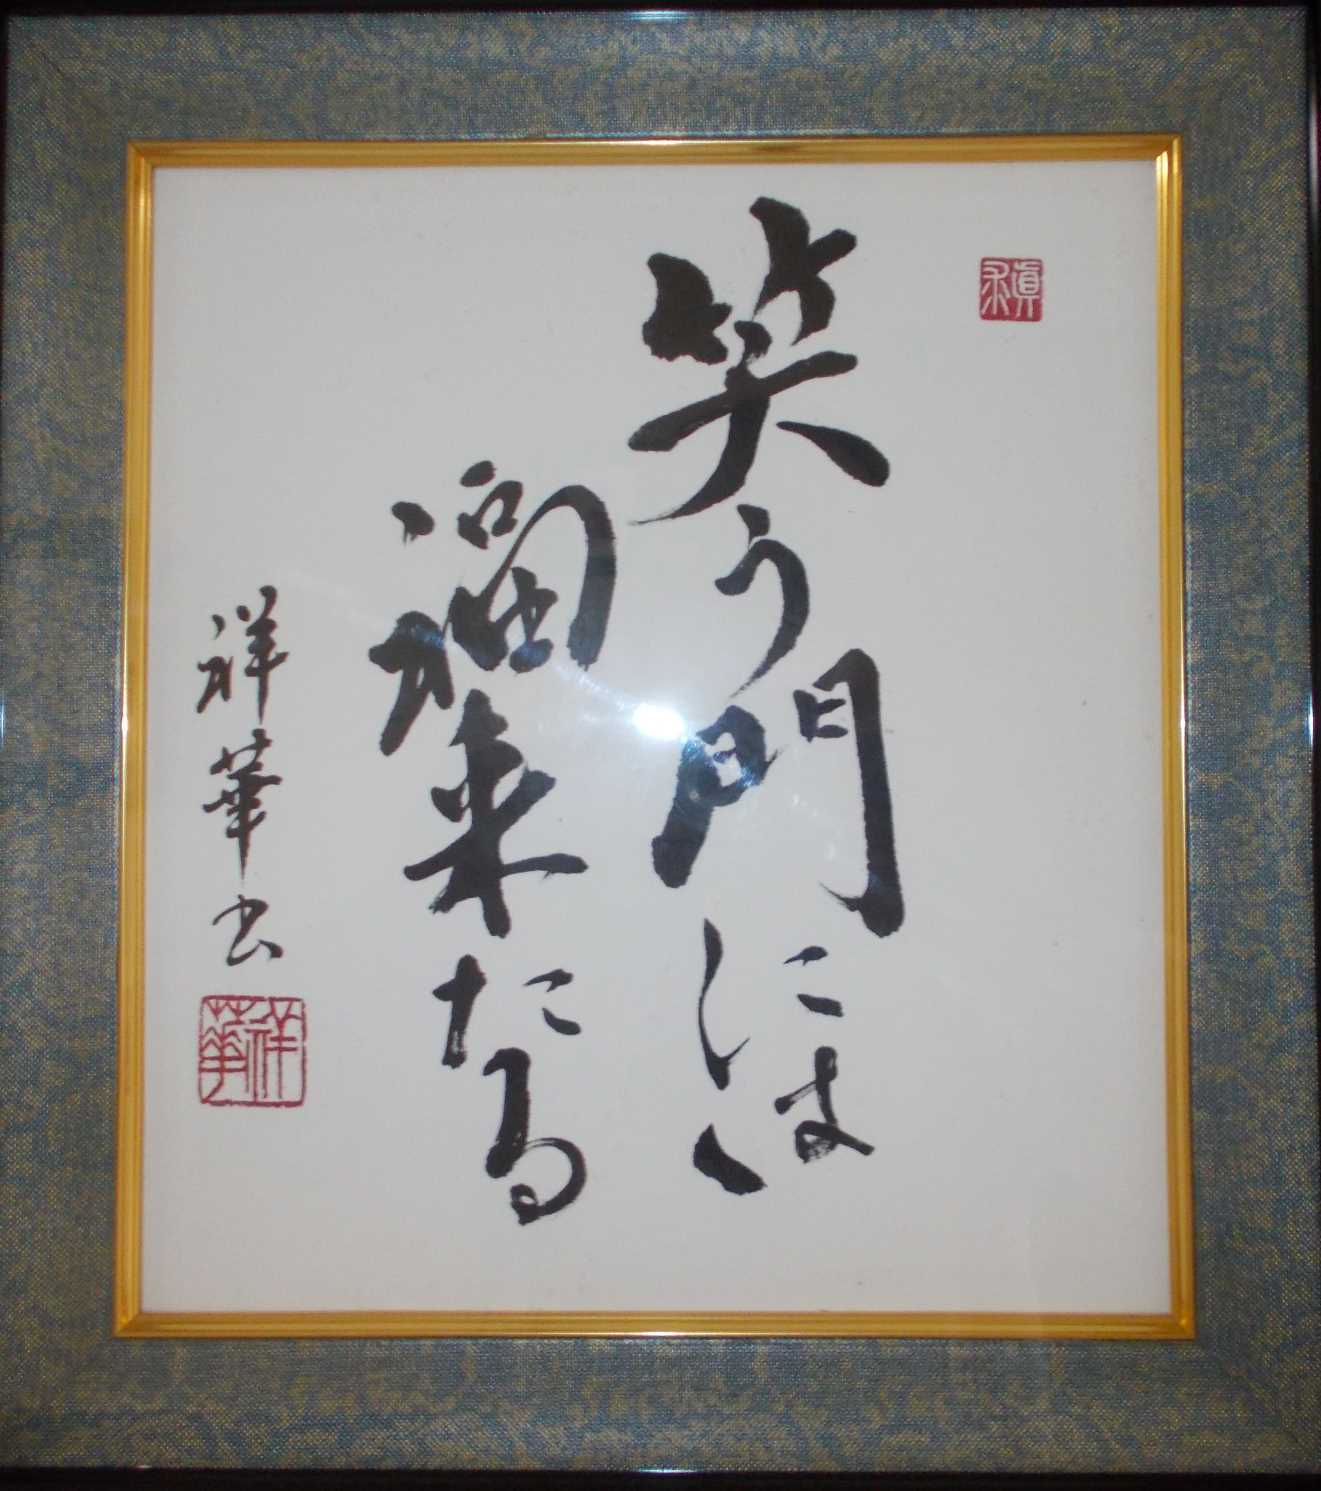 笑う門には
福来たる
祥華書
祥華